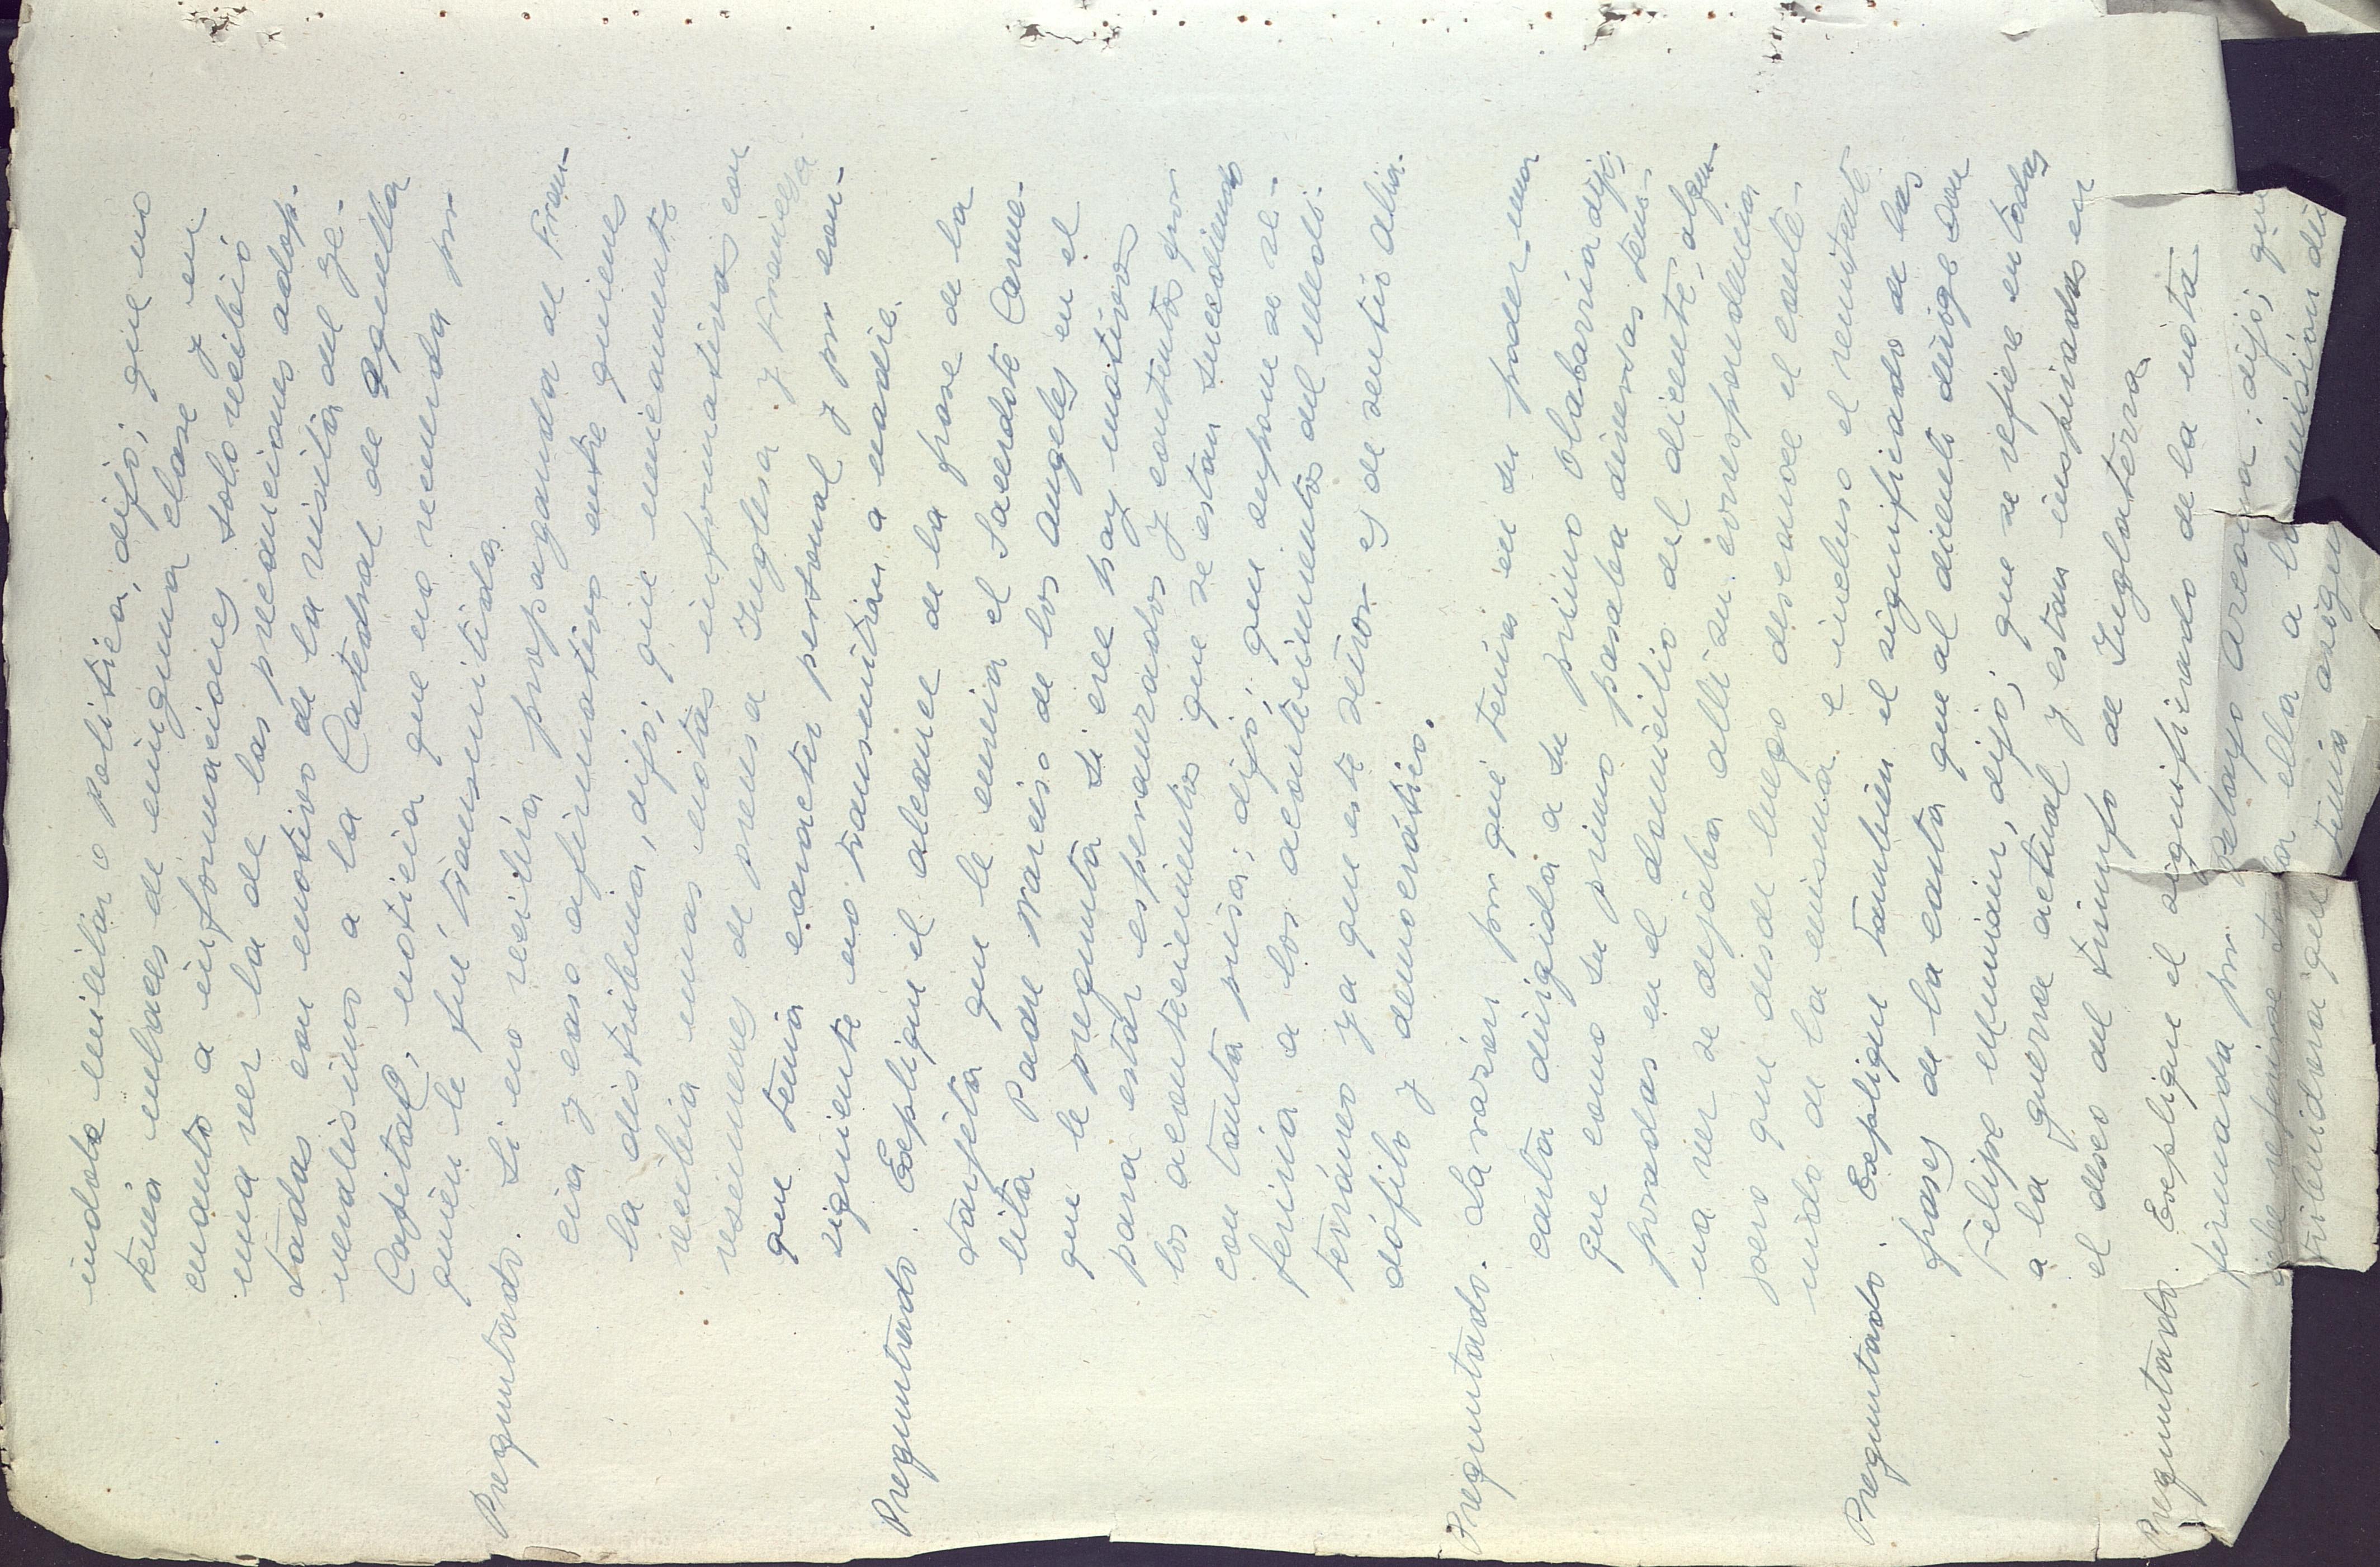 indole militar o politica, dijo; que no
tenia enlaces de ninguna clase y en
cuanto a informaciones solo recibió
una vez la de las precauciones adop-
tadas con motivo de la visita del ge-
neralisimo a la Catedral de aquella
Capital, noticia que no recuerda por
quien le fué transmitida.
Preguntado. Si no recibia propaganda de Fran-
cia y caso afirmativo entre quienes
la distribuia, dijo; que unicamente
recibia unas notas informativas con
resumenes de prensa Inglesa y Francesa
que tenia caracter personal y por con-
siguiente no transmitia a nadie.
Preguntado. Explique el alcance de la frase de la
tarjeta que le envia el Sacerdote Carme-
lita Padre Narciso de los Angeles en el
que le pregunta si cree hay motivos
para estar esperanzados y contentos por
los acontecimientos que se estan sucediendo
con tanta prisa; dijo; que supone se re-
feriria a los acontecimientos del medi-
terráneo ya que este señor es de sentir alia-
dófilo y democrático.
Preguntado. La razón por que tenia en su poder una
carta dirigida a su primo Olabarria dijo;
que como su primo pasaba diversas tem-
poradas en el domicilio del dicente, algu-
na vez se dejaba alli su correspondencia
pero que desde luego desconoce el conte-
nido de la misma e incluso el remitente.
Preguntado. Explique tambien el significado de las
frases de la carta que al dicente dirige Don
Felipe Munniain, dijo; que se refiere en todas
a la guerra actual y estan inspiradas en
el deseo del triunfo de Inglaterra
Preguntado. Explique el significado de la nota
firmada por Pelayo Arecona; dijo; que
debe referirse ella a la emisión de
que tenia